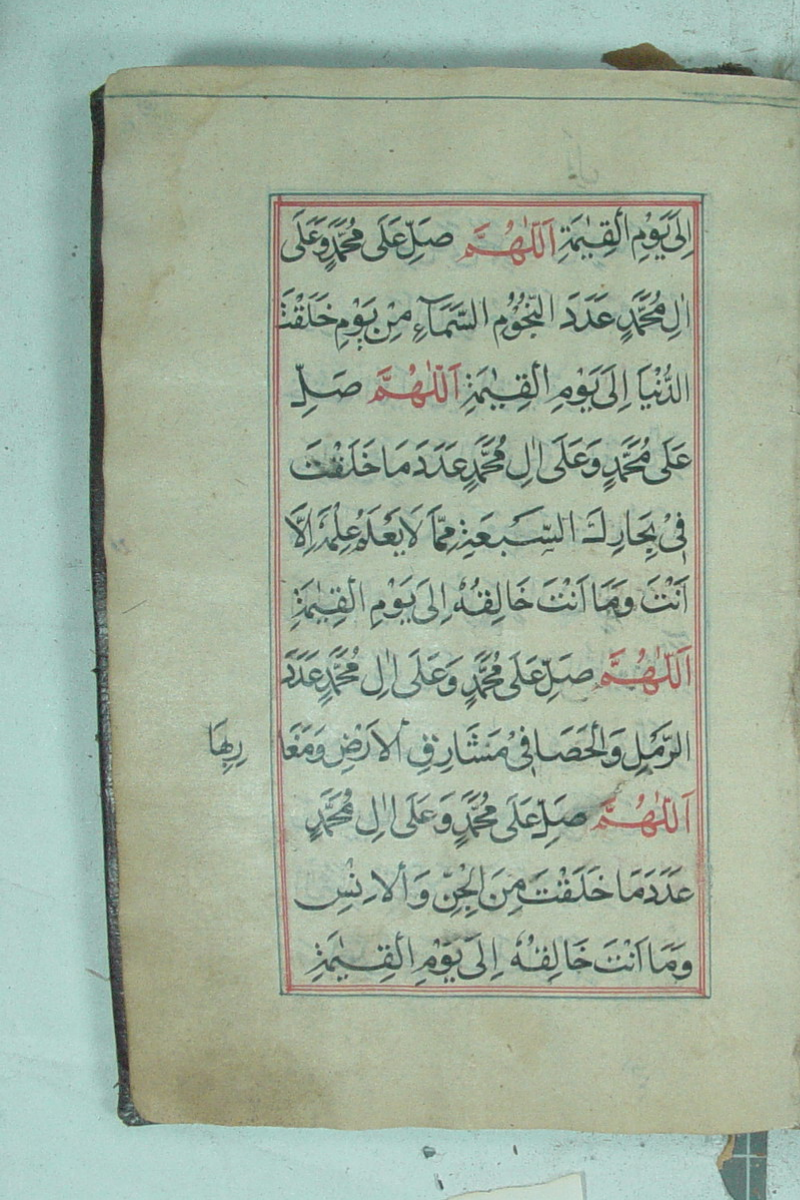 اِلَىٰ يَوْمِ الْقِيٰمَةِ اَللّٰهُمَّ صَلِّ عَلَى مُحَمَّدٍ وَعَلَى
اٰلِ مُحَمَّدٍ عَدَدَ النُّجُوْمِ السَّمَآءِ مِنْ يَوْمِ خَلَقْتَ
الدُّنْيَا اِلَى يَوْمِ الْقِيٰمَةِ اَللّٰهُمَّ صَلِّ
عَلَى مُحَمَّدٍ وَعَلَى اٰلِ مُحَمَّدٍ عَدَدَ مَا خَلَقْتَ
فِيْ بِحَارِكَ السَّبْعَةِ مِمَّا لَا يَعْلَمُ عِلْمَهُ اِلَّا
اَنْتَ وَمَا اَنْتَ خَالِقُهُ اِلَى يَوْمِ الْقِيٰمَةِ
اَللّٰهُمَّ صَلِّ عَلَى مُحَمَّدٍ وَعَلَى اٰلِ مُحَمَّدٍ عَدَدَ
الرَّمْلِ وَالْحَصَا فِيْ مَشَارِقِ الْاَرْضِ وَمَغَا
رِبِهَا
اَللّٰهُمَّ صَلِّ عَلَى مُحَمَّدٍ وَعَلَى اٰلِ مُحَمَّدٍ
عَدَدَ مَا خَلَقْتَ مِنَ الْجِنِّ وَالْاِنْسِ
وَمَا اَنْتَ خَالِقُهُ اِلَى يَوْمِ الْقِيٰمَةِ